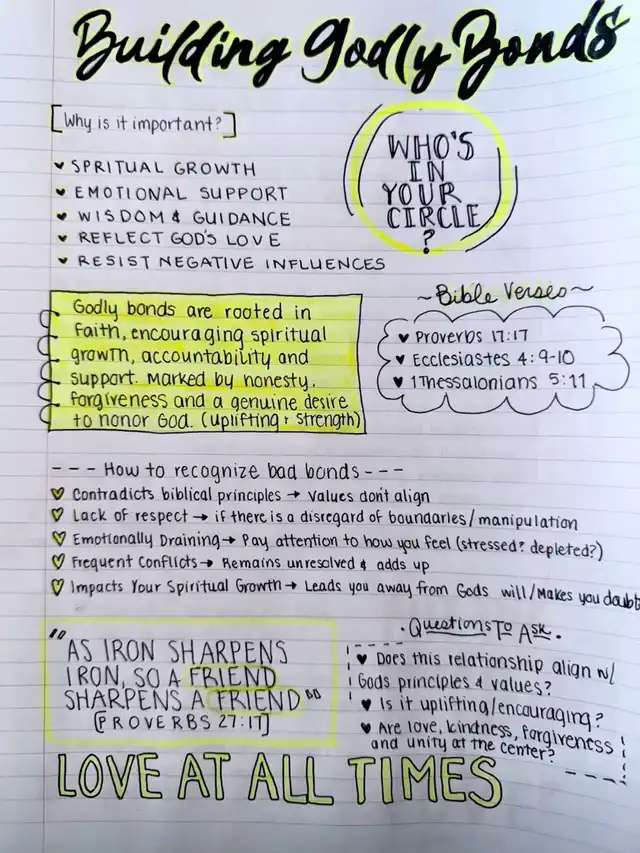 Building Godly Bonds
[Why is it important?]
SPRITUAL GROWTH
EMOTIONAL SUPPORT
WISDOM & GUIDANCE
REFLECT GOD'S LOVE
RESIST NEGATIVE INFLUENCES
WHO'S
IN
YOUR
CIRCLE
?
Godly bonds are rooted in
Faith, encouraging spiritual
growth, accountability and
support. Marked by honesty,
forgiveness and a genuine desire
to honor God. (uplifting + strength)
~Bible Verses~
♥ Proverbs 17:17
♥ Ecclesiastes 4:9-10
♥ 1 Thessalonians 5:11
--- How to recognize bad bonds ---
♥ Contradicts biblical principles → Values don't align
♥ Lack of respect → if there is a disregard of boundaries/manipulation
♥ Emotionally Draining → Pay attention to how you feel (stressed? depleted?)
♥ Frequent Conflicts → Remains unresolved & adds up
♥ Impacts Your Spiritual Growth → Leads you away from Gods will/Makes you doubt
"AS IRON SHARPENS
IRON, SO A FRIEND
SHARPENS A FRIEND"
[PROVERBS 27:17]
· Questions To Ask ·
♥ Does this relationship align w/
Gods principles & values?
♥ Is it uplifting/encouraging?
♥ Are love, kindness, forgiveness
and unity at the center?
LOVE AT ALL TIMES